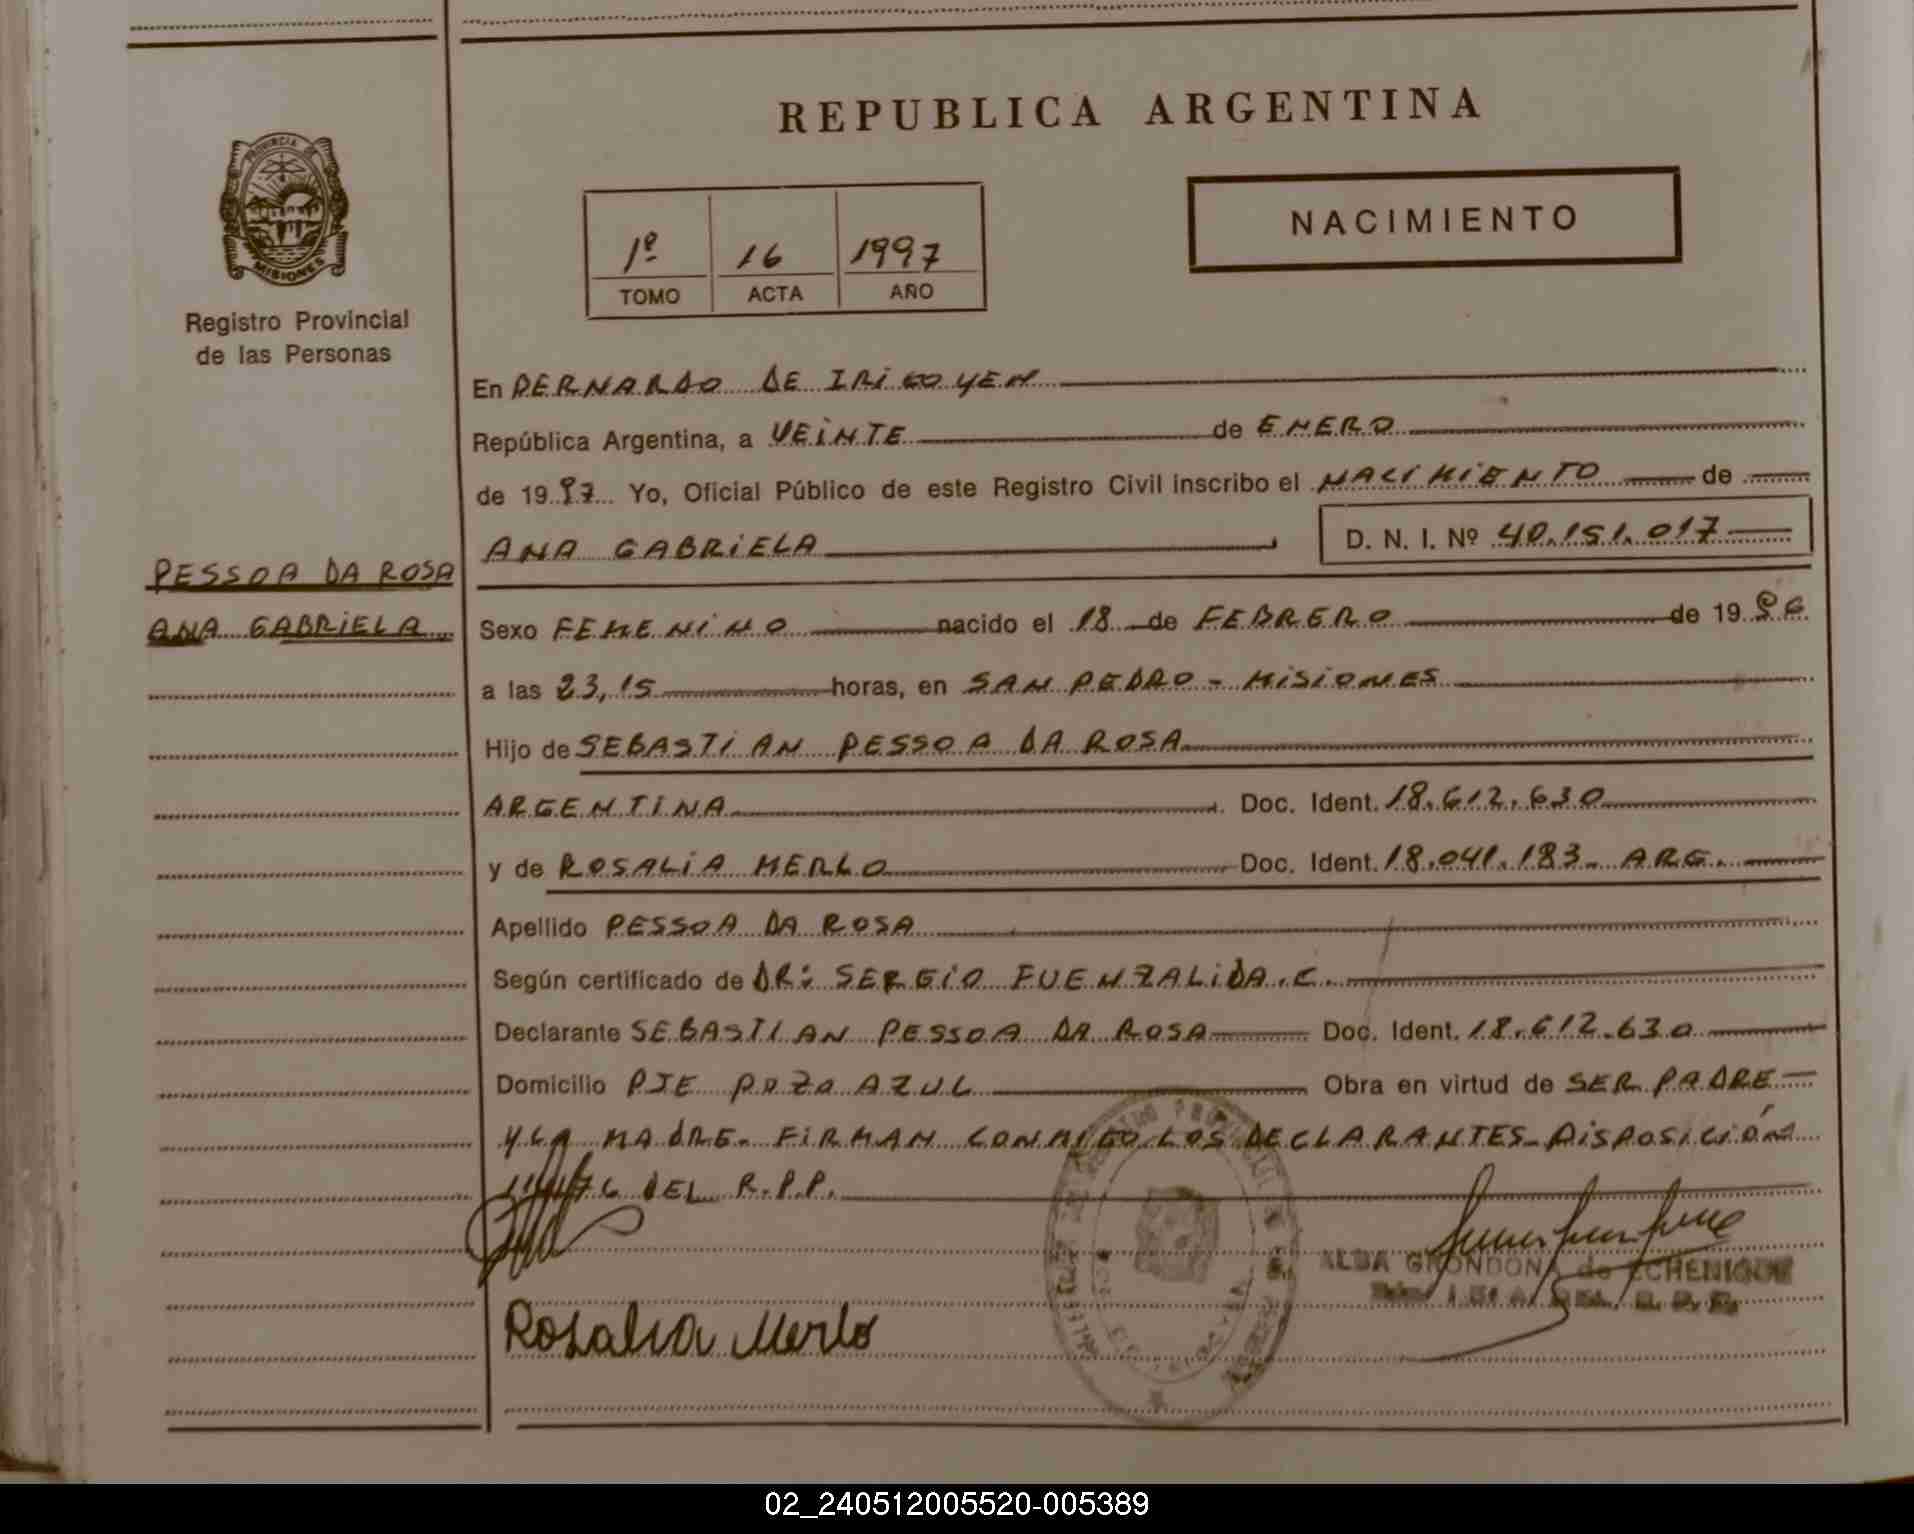 REPUBLICA ARGENTINA
PROVINCIA DE
MISIONES
Registro Provincial
de las Personas
NACIMIENTO
1º 16 1997
TOMO ACTA AÑO
En BERNARDO DE IRIGOYEN
República Argentina, a VEINTE de ENERO
de 1997 Yo, Oficial Público de este Registro Civil inscribo el NACIMIENTO de
ANA GABRIELA D. N. I. Nº 40.151.017
PESSOA DA ROSA
ANA GABRIELA
Sexo FEMENINO nacido el 18 de FEBRERO de 1996
a las 23,15 horas, en SAN PEDRO - MISIONES
Hijo de SEBASTIAN PESSOA DA ROSA
ARGENTINA Doc. Ident. 18.612.630
y de ROSALIA MERLO Doc. Ident. 18.041.183 - ARG.
Apellido PESSOA DA ROSA
Según certificado de DR: SERGIO FUENZALIDA.C.
Declarante SEBASTIAN PESSOA DA ROSA Doc. Ident. 18.612.630
Domicilio PJE POZO AZUL Obra en virtud de SER PADRE
Y LA MADRE - FIRMAN CONMIGO LOS DECLARANTES - DISPOSICIÓN
DEL R.P.P.
ALBA GRONDONA de ECHENIQUE
Rosalia Merlo
02_240512005520-005389